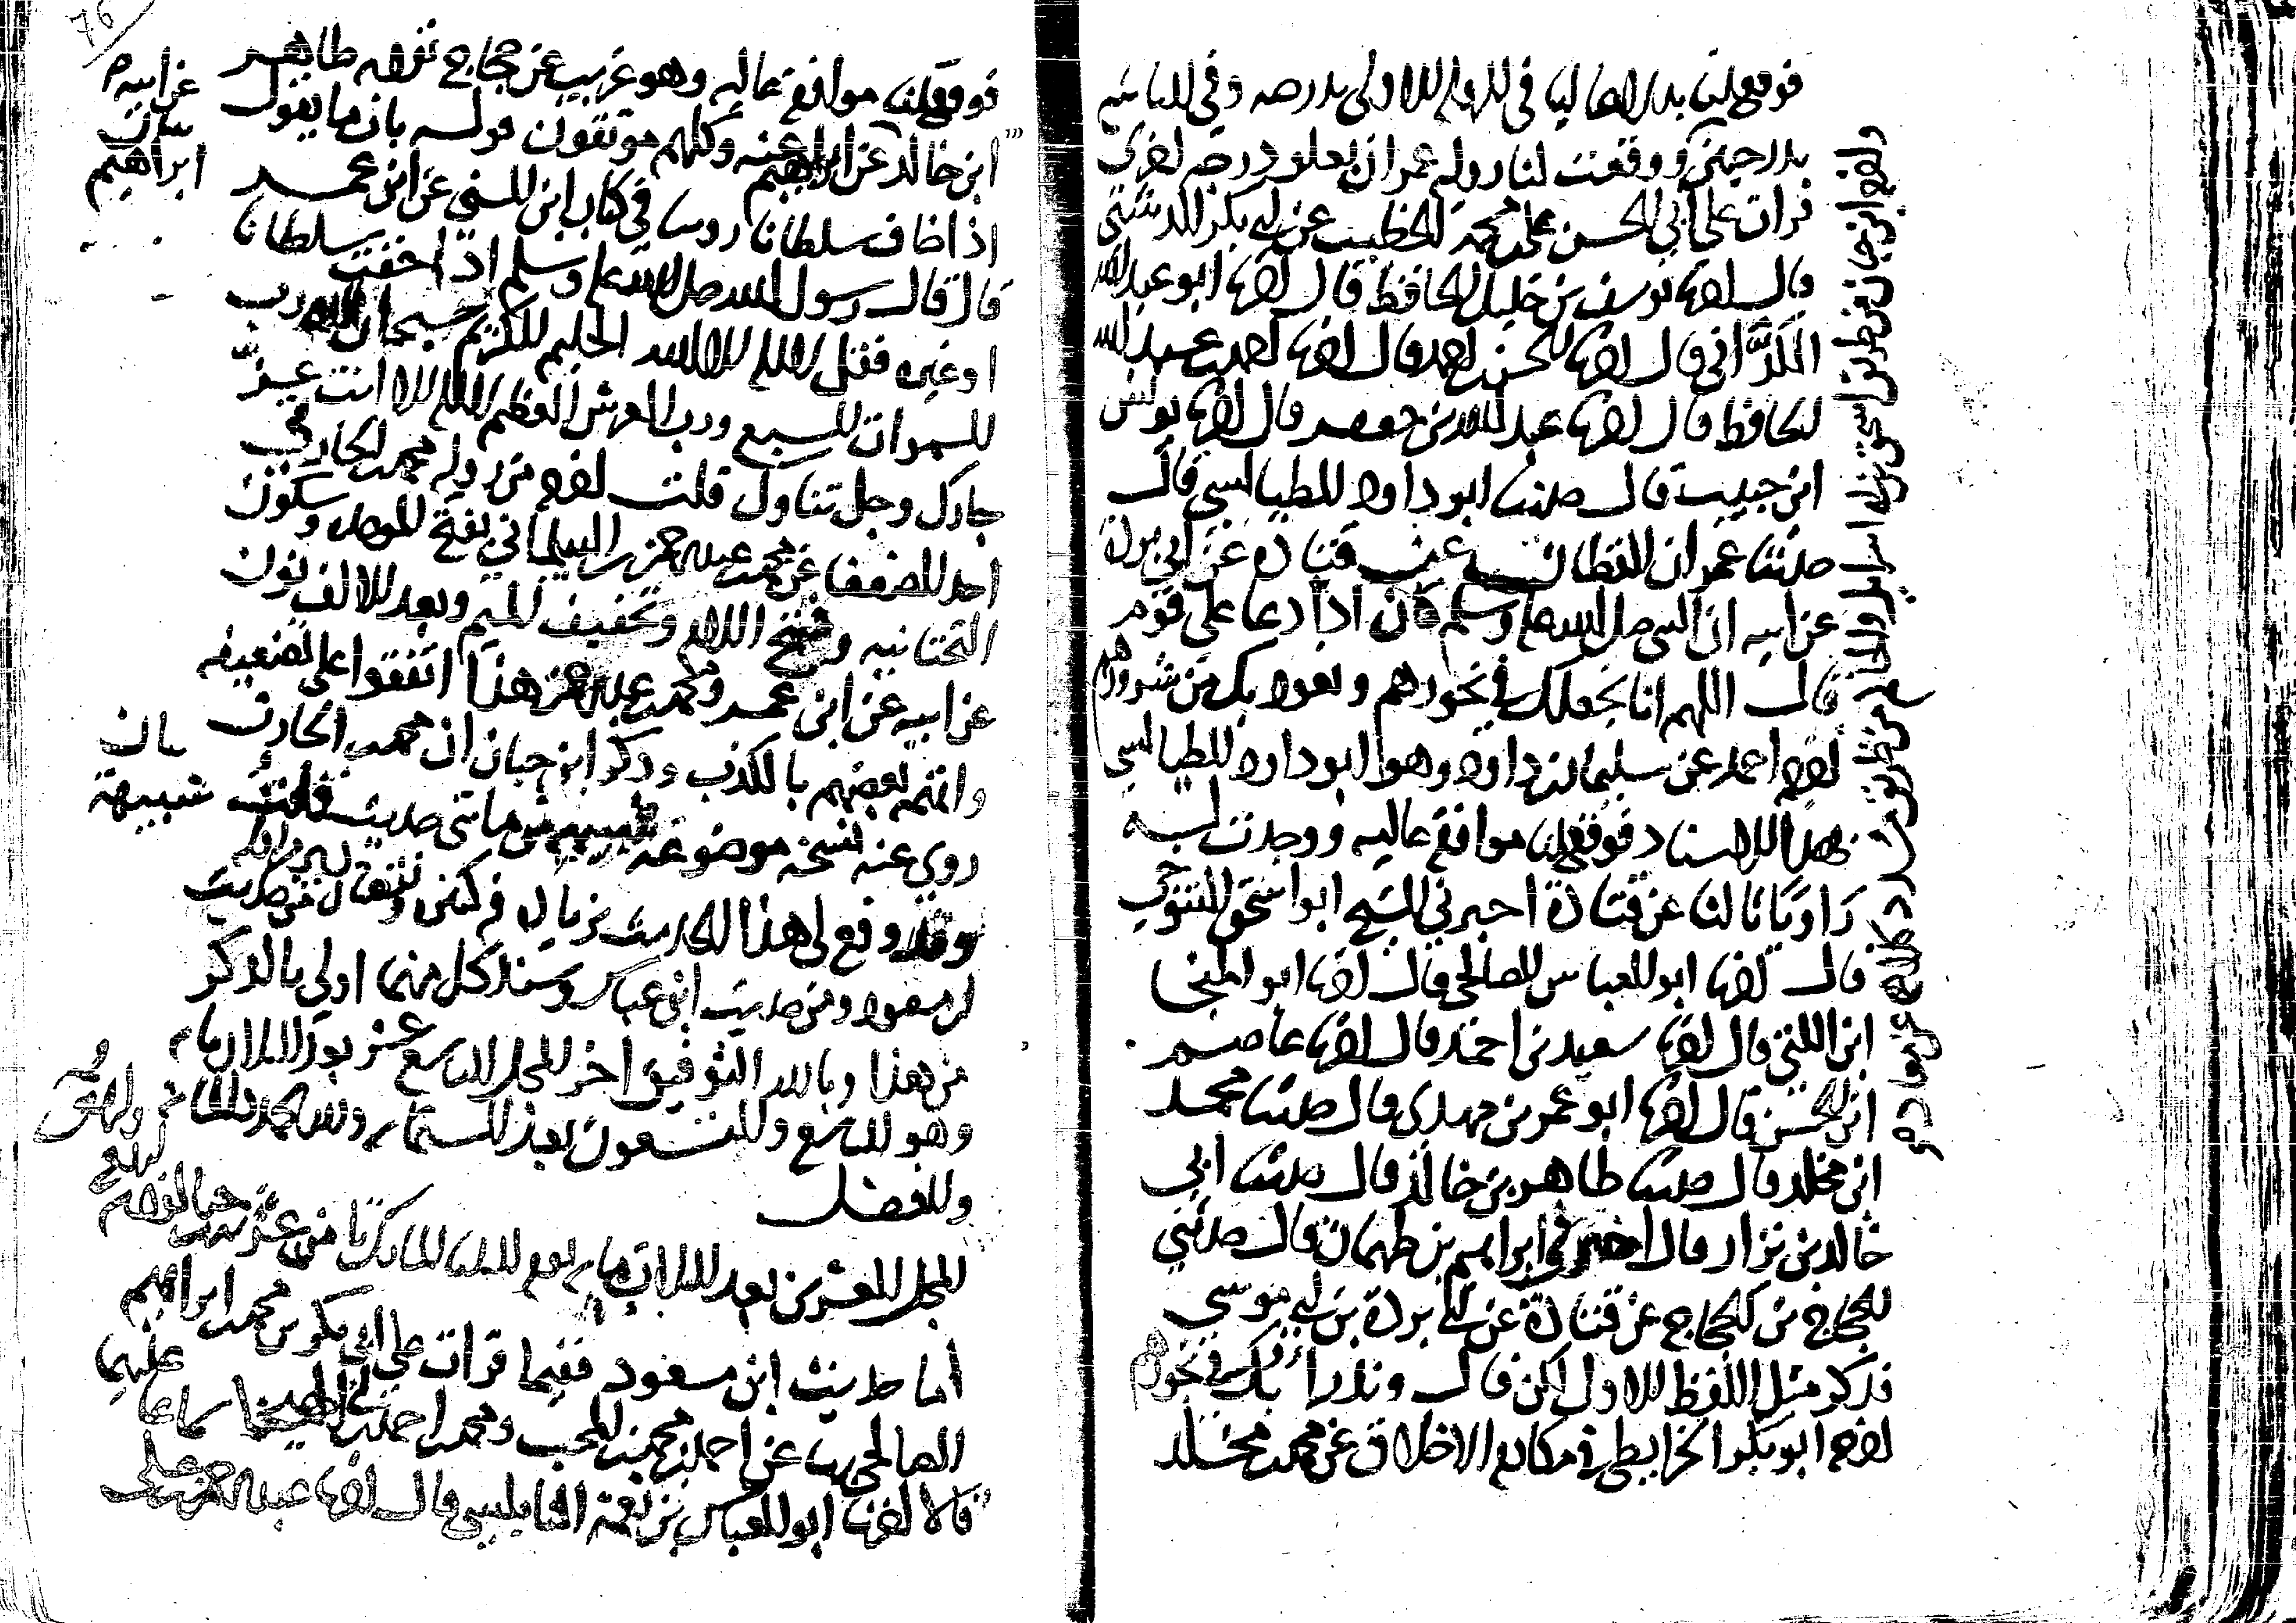 فوقع لنا بدلا عاليا في الرواية الاولى بدرجة وفي الثانية
بدرجتين ووقعت لنا رواية عمران بعلو درجة اخرى
قرات على ابي الحسن علي بن محمد الخطيب عن ابي بكر الدشتي
قال اخبرنا يوسف بن خليل الحافظ قال اخبرنا ابو عبد الله
الكراني قال اخبرنا الحسن بن احمد قال اخبرنا احمد بن عبد الله
الحافظ قال اخبرنا عبد الله بن جعفر قال اخبرنا يونس
ابن حبيب قال حدثنا ابو داود الطيالسي قال
حدثنا عمران القطان عن قتادة عن ابي بردة
عن ابيه ان النبي صلى الله عليه وسلم كان اذا دعا على قوم
قال اللهم انا نجعلك في نحورهم ونعوذ بك من شرورهم
اخرجه احمد عن سليمان بن داود وهو ابو داود الطيالسي
بهذا الاسناد فوقع لنا موافقة عالية ووجدت له
راويا ثالثا عن قتادة اخبرني الشيخ ابو اسحق التنوخي
قال اخبرنا ابو العباس الصالحي قال اخبرنا ابو المنجا
ابن اللتي قال اخبرنا سعيد بن احمد قال اخبرنا عاصم
ابن الحسن قال اخبرنا ابو عمر بن مهدي قال حدثنا محمد
ابن مخلد قال حدثنا طاهر بن خالد قال حدثنا ابي
خالد بن نزار قال اخبرني ابراهيم بن طهمان قال حدثني
الحجاج بن الحجاج عن قتادة عن ابي بردة بن ابي موسى
فذكر مثل اللفظ الاول لكن قال وندرا بك في نحورهم
اخرجه ابو بكر الخرايطي في مكارم الاخلاق عن محمد بن مخلد
فوقع لنا موافقة عالية وهو غريب عن حجاج تفرد به طاهر
ابن خالد عن ابيه عن ابراهيم عنه وكلهم موثقون قوله باب ما يقول
عن ابيه
بيان
ابراهيم
اذا خاف سلطانا روينا في كتاب ابن السني عن ابن عمر
قال قال رسول الله صلى الله عليه وسلم اذا خفت سلطانا
او غيره فقل لا اله الا الله الحليم الكريم سبحان الله رب
السموات السبع ورب العرش العظيم لا اله الا انت عز
جارك وجل ثناؤك قلت اخرجه من رواية محمد بن الحارث
احد الضعفا عن محمد بن عبد الرحمن البيلماني بفتح الموحدة وسكون
التحتانية وفتح اللام وتخفيف الميم وبعد الالف نون
عن ابيه عن ابن عمر ومحمد بن عبد الرحمن هذا اتفقوا على تضعيفه
واتهمه بعضهم بالكذب وذكر ابن حبان ان محمد بن الحارث
روى عنه نسخة موضوعة شبيهة من مائتي حديث قلت
بيان
شبيهة
وقد وقع لي هذا الحديث من حديث
ابن مسعود ومن حديث ابن عباس وسند كل منهما اولى بالذكر
من هذا وبالله التوفيق اخر المجلس التاسع عشر بعد الثلاث ماية
وهو التاسع والتسعون بعد الستماية ولله الحمد
والفضل
المجلس العشرين بعد الثلاث ماية
اما حديث ابن مسعود ففيما قرات على ابي بكر بن محمد بن ابراهيم
الصالحي بها عن احمد بن محمد بن المحب ومحمد بن احمد بن ابي الهيجا سماعا عليهما
قالا اخبرنا ابو العباس بن نعمة النابلسي قال اخبرنا عبد الرحمن بن علي